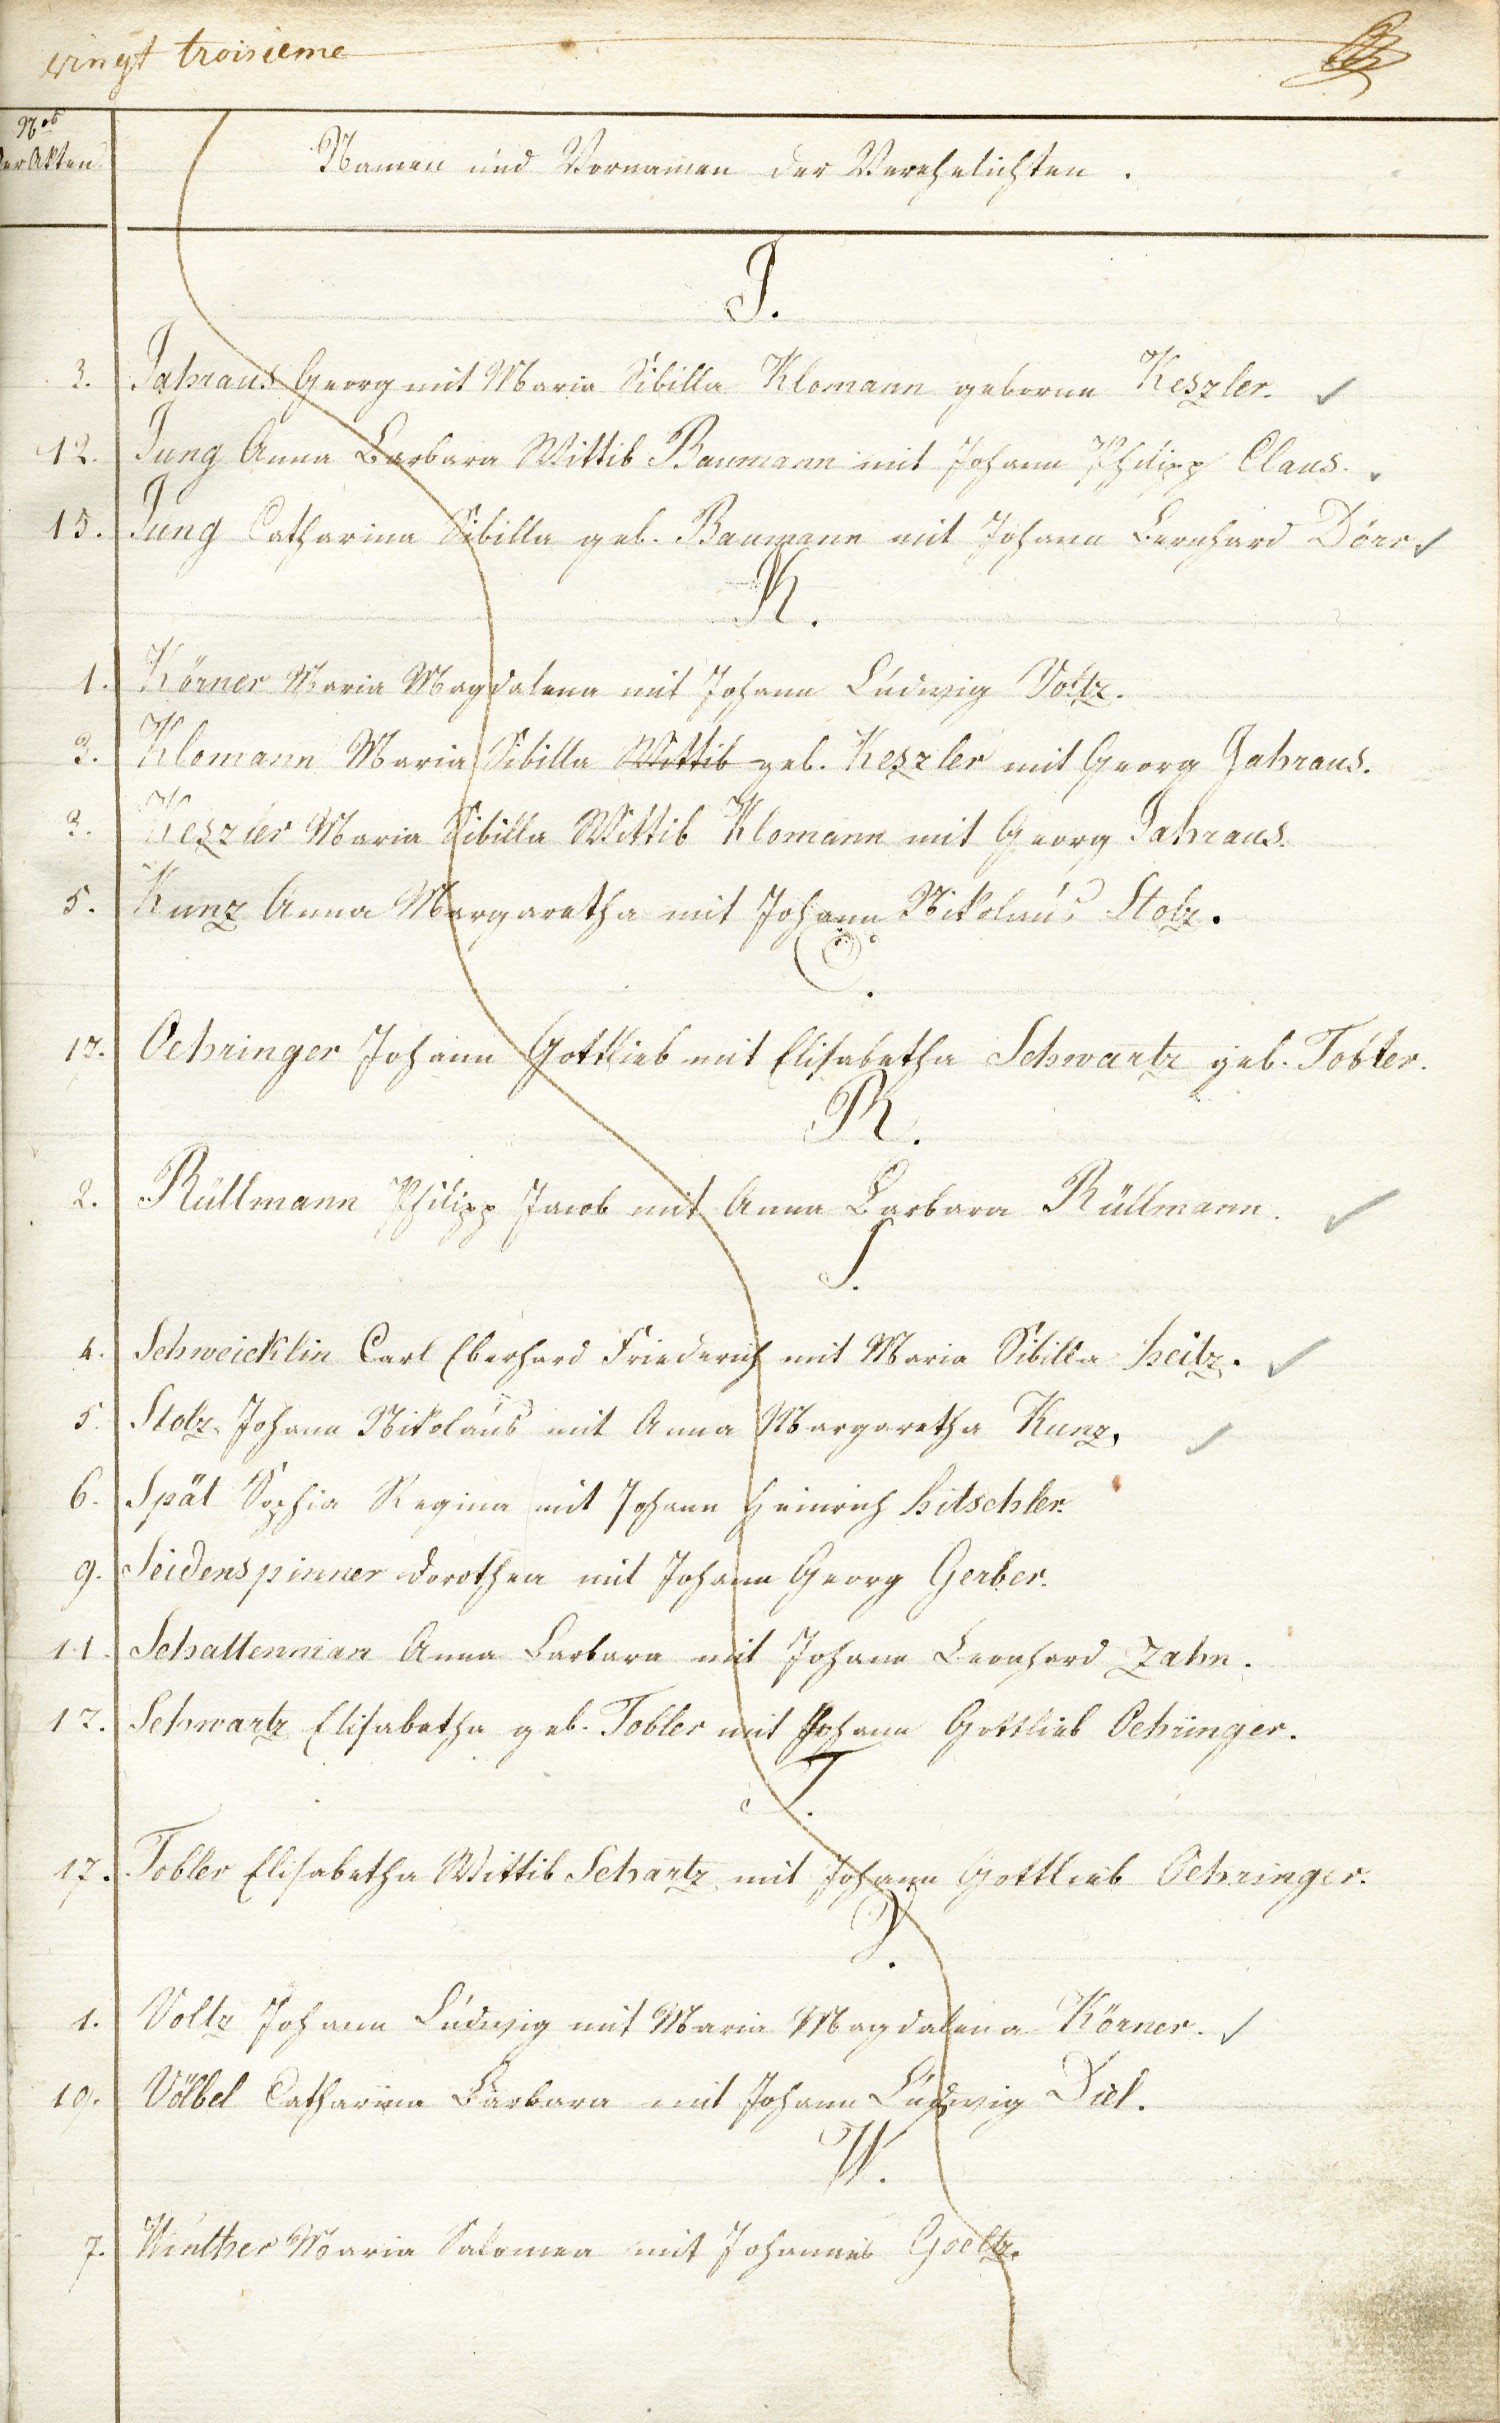 vingt troisieme
Nos
der Akten
Namen und Vornamen der Verehelichten.
J.
3. Jahraus Georg mit Maria Sibilla Klomann geborne Keszler.
12. Jung Anna Barbara Wittib Baumann mit Johann Philipp Claus.
15. Jung Catharina Sibilla geb. Baumann mit Johann Bernhard Dörr
K.
1. Körner Maria Magdalena mit Johann Ludwig Voltz.
3. Klomann Maria Sibilla Wittib geb. Keszler mit Georg Jahraus.
3. Keszler Maria Sibilla Wittib Klomann mit Georg Jahraus.
5. Kunz Anna Margaretha mit Johann Nikolaus Stolz.
O.
17. Oehringer Johann Gottlieb mit Elisabetha Schwartz geb. Tobler.
R.
2. Rüllmann Philipp Jacob mit Anna Barbara Rüllmann.
S.
4. Schweicklin Carl Eberhard Friederich mit Maria Sibilla Heitz.
5. Stolz Johann Nikolaus mit Anna Margaretha Kunz.
6. Spät Sophia Regina mit Johann Heinrich Hitschler.
9. Seidenspinner Dorothea mit Johann Georg Gerber.
11. Schattenman Anna Barbara mit Johann Leonhard Zahn.
17. Schwartz Elisabetha geb. Tobler mit Johann Gottlieb Oehringer.
T.
17. Tobler Elisabetha Wittib Schartz mit Johann Gottlieb Oehringer.
V.
1. Voltz Johann Ludwig mit Maria Magdalena Körner.
19. Völbel Catharina Barbara mit Johann Ludwig Diel.
W.
7. Winther Maria Salomea mit Johannes Goeltz.